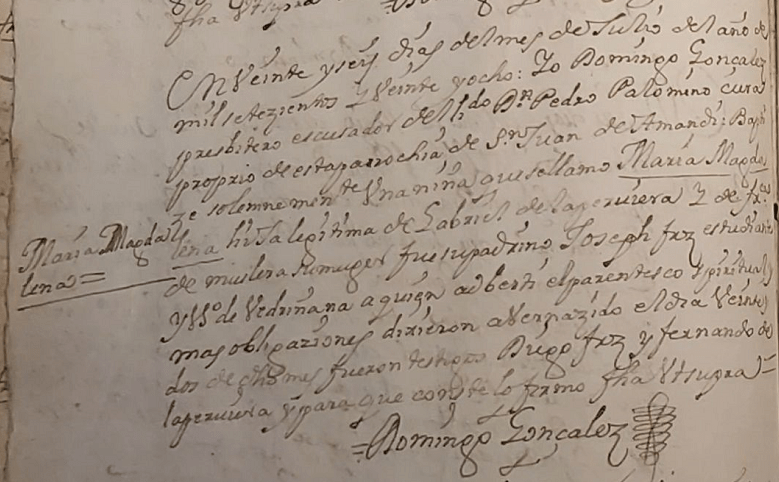 fha Vtsupra
En Veinte y seis dias del mes de Julio del año de
mil setezientos y Veinte y ocho: Yo Domingo Gonçalez
presbitero escusador del lido Dn Pedro Palomino cura
proprio de esta parrochia de Sn Juan de Amandi: Bapti
ze solemnemente Vna niña que se llamo Maria Magda
Maria Magda
lena =
lena hija legitima de Gabriel de la peruiera y de frca
de muslera su muger fue su padrino Joseph frz estudiante
y Vº de Vedriñana a quien adberti el parentesco spiritual
mas obligaziones dixieron aver nazido el dia Veinte y
dos de dho mes fueron testigos Diego frz y fernando de
la peruiera y para que conste lo firmo fha Vtsupra =
= Domingo Gonçalez